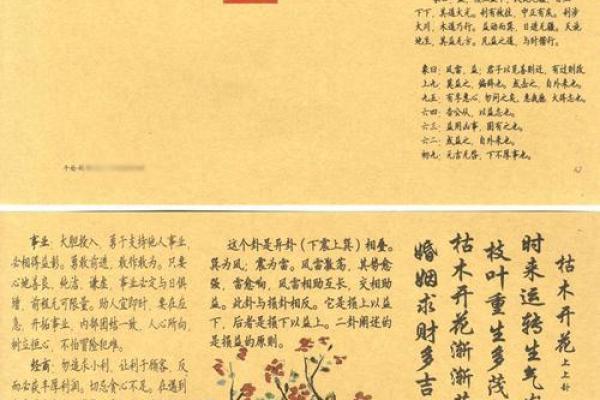 下下，其道大光。利有攸往，中正有庆。利涉
大川，木道乃行。益动而巽，日进无疆。天施
地生，其益无方。凡益之道，与时偕行。
象曰：风雷，益；君子以见善则迁，有过则改
上九：莫益之，偏辞也。或击之，自外来也。
九五：有孚惠心，勿问之矣。惠我德，大得志也。
六四：告公从，以益志也。
六三：益用凶事，固有之也。
六二：或益之，自外来也。
初九：元吉无咎，下不厚事也。
事业：大胆投入，勇于支持他人事业，
必相得益彰。勇敢前进，敢作敢为。只要
心地善良，纯洁，谦虚，事业必定与日俱
增，前程无可限量。助人宜即时，要在应
急，开拓事业，内部团结一致，人心所向，
树立恒心，不怕冒险犯难。
经商：勿追求小利，让利于顾客，反
而会获丰厚利润。切忌贪心不足。在遇到
这个卦是异卦（下震上巽）相叠。
巽为风；震为雷。风雷激荡，其势愈
强，雷愈响，风雷相助互长，交相助
益。此卦与损卦相反。它是损上以益
下，后者是损下以益上。二卦阐述的
是损益的原则。
枯木开花 上上卦
时来运转生气
枝叶重生多茂
枯木开花渐渐
婚姻求财多吉